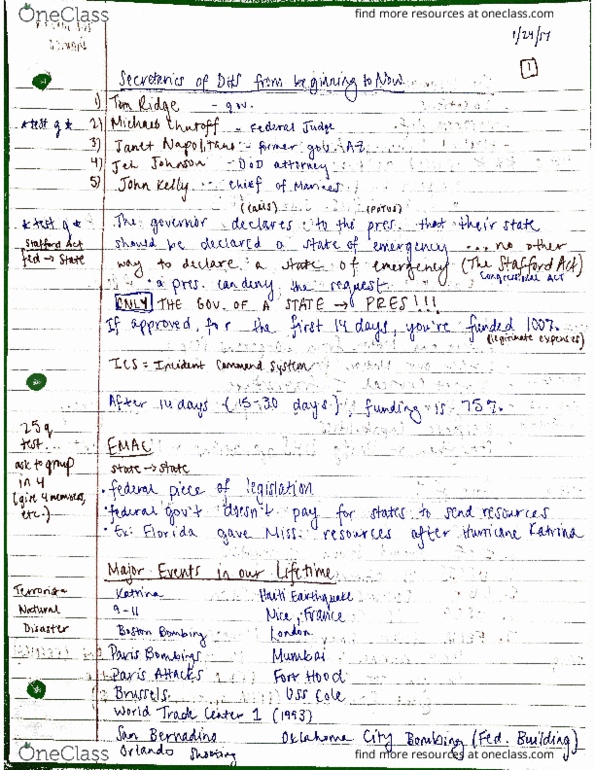 OneClass
find more resources at oneclass.com
1/24/17
1
Secretaries of DHS from beginning to Now
1) Tom Ridge - gov.
*test q* 2) Michael Chutoff - Federal Judge
3) Janet Napolitano - former gov. AZ
4) Jeh Johnson - DoD attorney
5) John Kelly - chief of Marines
(POTUS)
*test q* The governor declares to the pres. that their state
Stafford Act should be declared a state of emergency ... no other
fed → State way to declare a state of emergency (The Stafford Act)
Congressional Act
• a pres. can deny the request
ONLY THE GOV. OF A STATE → PRES!!!
If approved, for the first 14 days, you're funded 100%
(legitimate expenses)
ICS = Incident Command System
After 14 days (15-30 days), funding is 75%
25 q
test...
ask to group
in 4
(give 4 memories,
etc.)
EMAC
state → state
• federal piece of legislation
• federal gov't doesn't pay for states to send resources
• Ex: Florida gave Miss. resources after Hurricane Katrina
Major Events in our Lifetime
Terrorism Katrina Haiti Earthquake
Natural 9-11 Nice, France
Disaster Boston Bombing London
Paris Bombings Mumbai
Paris Attacks Fort Hood
Brussels USS Cole
World Trade Center 1 (1993)
San Bernadino Oklahoma City Bombing (Fed. Building)
Orlando Shooting
OneClass
find more resources at oneclass.com